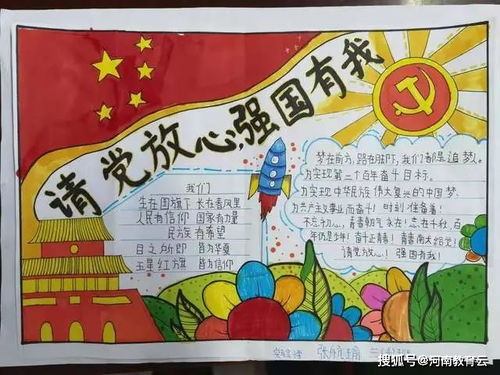 请党放心,强国有我
我们
生在国旗下 长在春风里
人民有信仰 国家有力量
民族有希望
目之所即 皆为华夏
五星红旗 皆为信仰
梦在前方,路在脚下,我们都是追梦人
为实现第二个百年奋斗目标。
为实现中华民族伟大复兴的中国梦,
为共产主义事业而奋斗! 时刻准备着!
不忘初心,青春朝气永在! 志在千秋,百
年仍是少年! 奋斗正青春! 青春献给党!
请党放心! 强国有我!
搜狐号@河南教育云